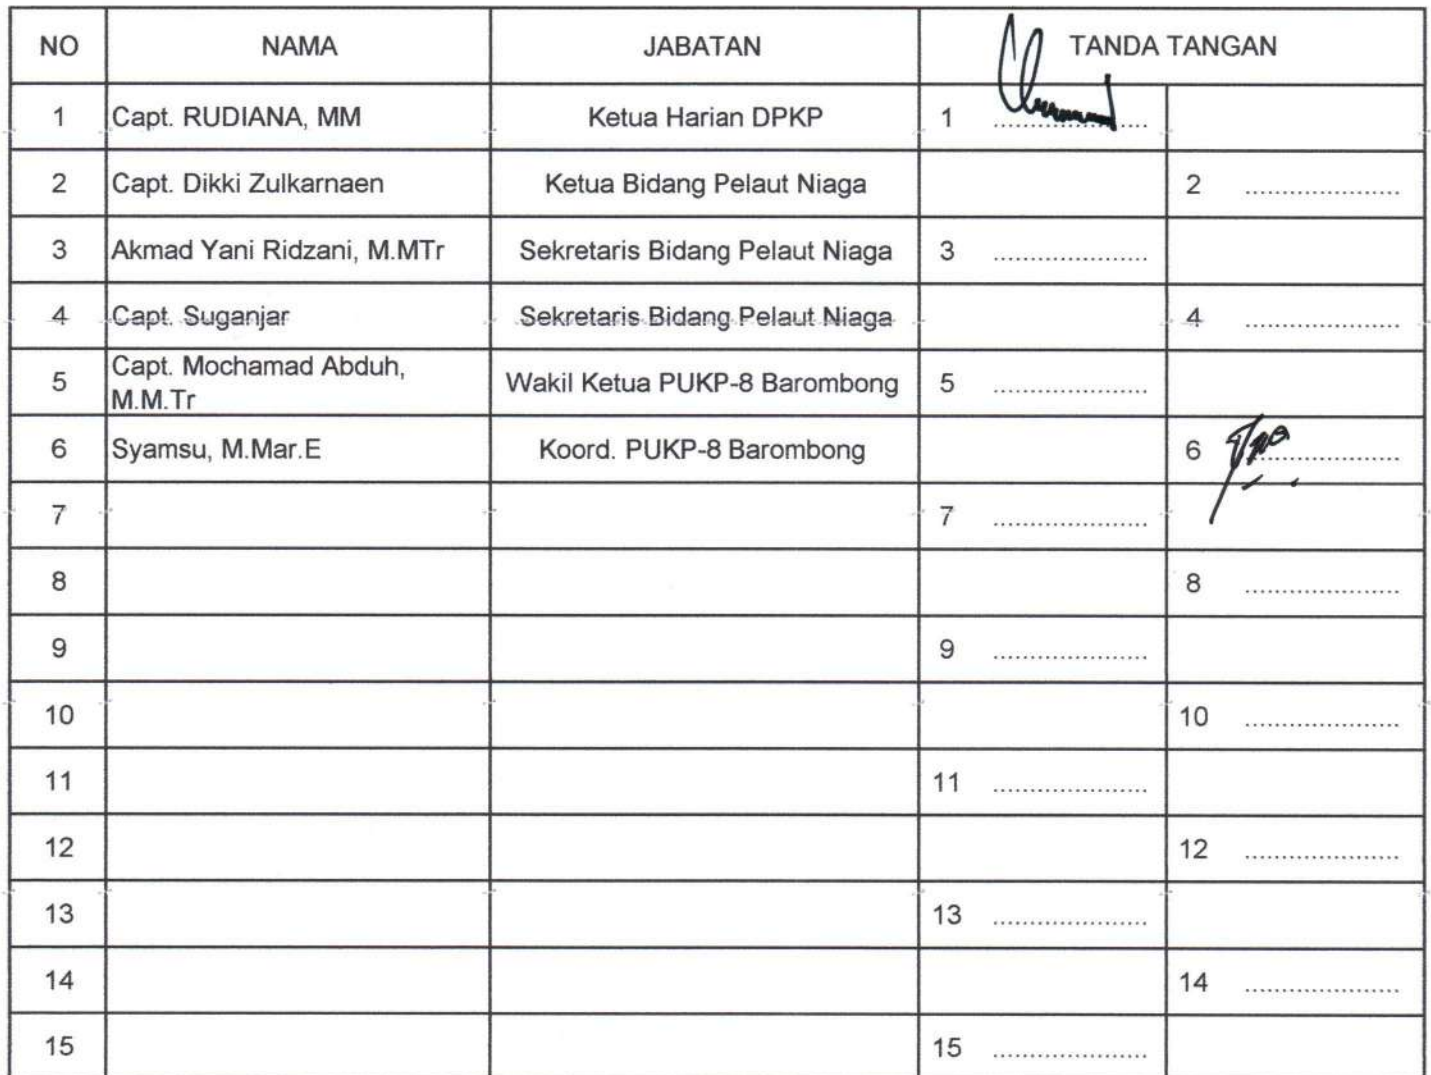 NO NAMA JABATAN TANDA TANGAN
1 Capt. RUDIANA, MM Ketua Harian DPKP 1 .....................
2 Capt. Dikki Zulkarnaen Ketua Bidang Pelaut Niaga 2 .....................
3 Akmad Yani Ridzani, M.MTr Sekretaris Bidang Pelaut Niaga 3 .....................
4 Capt. Suganjar Sekretaris Bidang Pelaut Niaga 4 .....................
5 Capt. Mochamad Abduh,
M.M.Tr Wakil Ketua PUKP-8 Barombong 5 .....................
6 Syamsu, M.Mar.E Koord. PUKP-8 Barombong 6 .....................
7 7 .....................
8 8 .....................
9 9 .....................
10 10 .....................
11 11 .....................
12 12 .....................
13 13 .....................
14 14 .....................
15 15 .....................